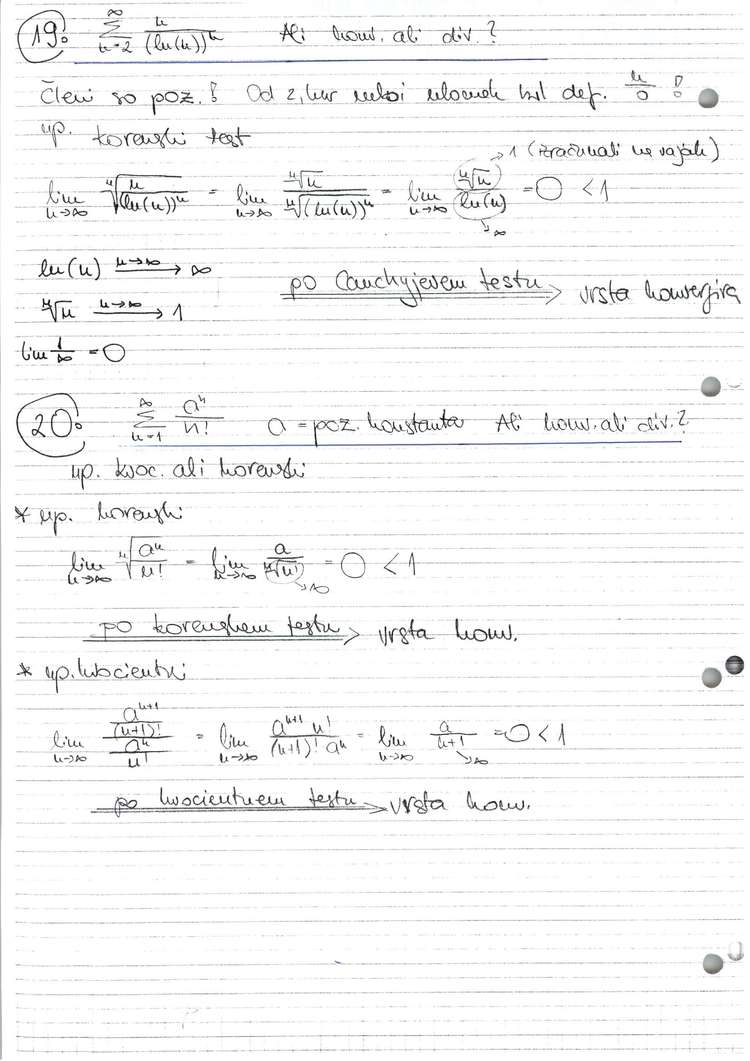 19. ∑_{n=2}^{∞} n/(ln(n))^n Ali konv. ali div.?
Členi so poz.! Od 2, ker nekoi ulomek bil def. n/0 !
up. korenski test
lim_{n→∞} ⁿ√(n/(ln(n))^n) = lim_{n→∞} ⁿ√n/ⁿ√((ln(n))^n) = lim_{n→∞} ⁿ√n/ln(n) = 0 < 1 →1 (izračunali na vajah) →∞
ln(n) →^{n→∞} ∞
po Cauchyjevem testu ⇒ vrsta konvergira
ⁿ√n →^{n→∞} 1
lim 1/∞ = 0
20. ∑_{n=1}^{∞} a^n/n! a = poz. konstanta Ali konv. ali div.?
up. kvoc. ali korenski
* up. korenski
lim_{n→∞} ⁿ√(a^n/n!) = lim_{n→∞} a/ⁿ√(n!) = 0 < 1 →∞
po korenskem testu ⇒ vrsta konv.
* up. kvocientni
lim_{n→∞} (a^{n+1}/(n+1)!)/(a^n/n!) = lim_{n→∞} a^{n+1} n!/((n+1)! a^n) = lim_{n→∞} a/(n+1) = 0 < 1 →∞
po kvocientnem testu ⇒ vrsta konv.